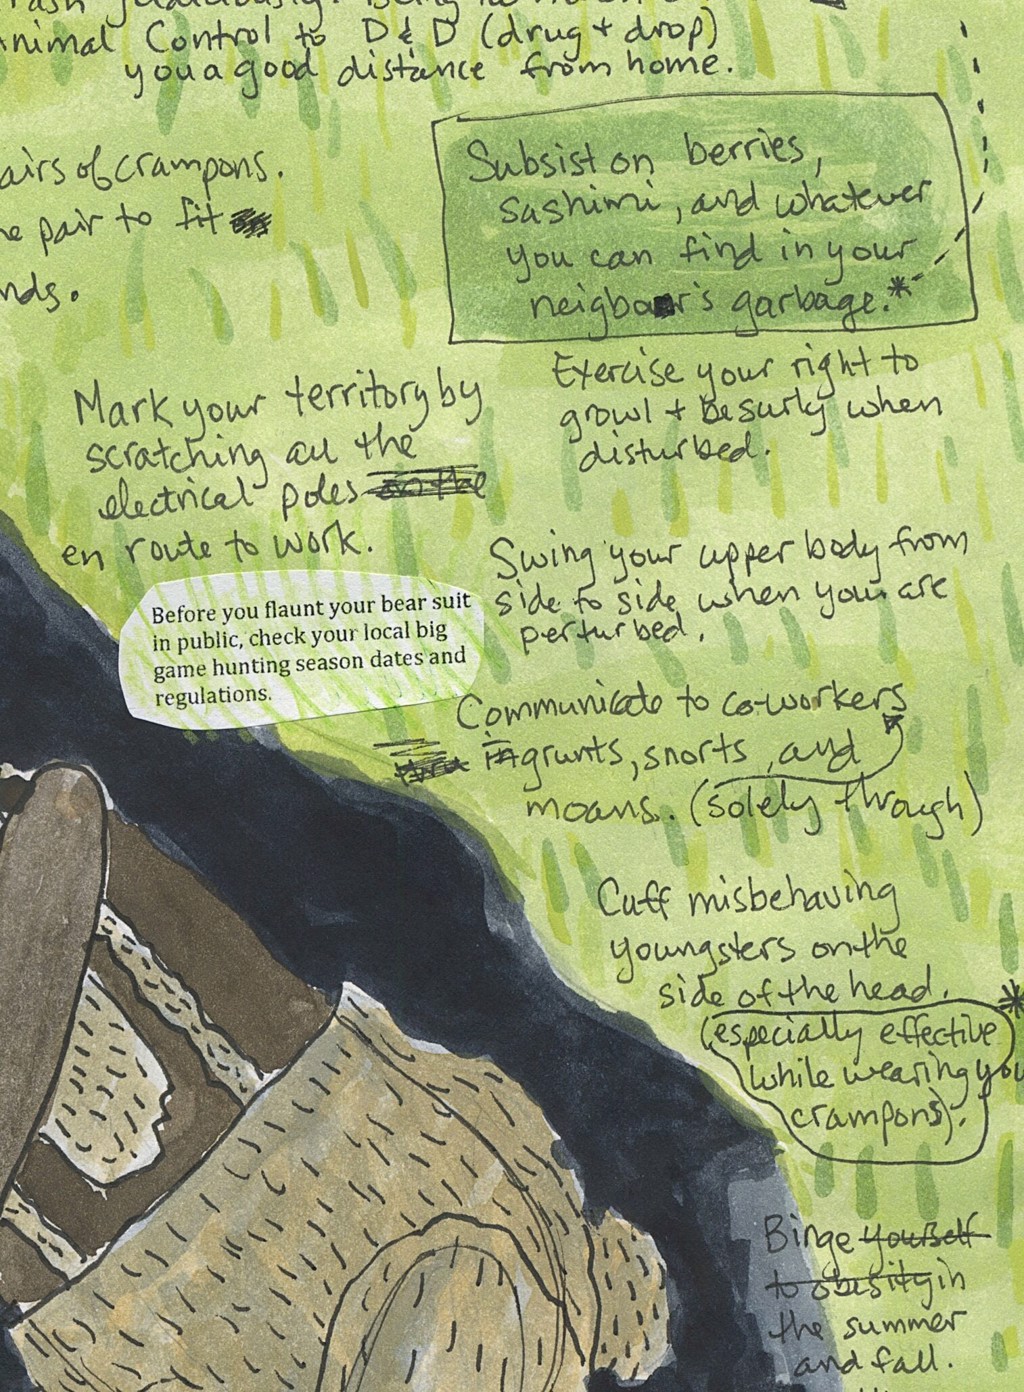 Animal Control to D & D (drug + drop)
you a good distance from home.
airs of crampons.
pair to fit
nds.
Subsist on berries,
sashimi, and whatever
you can find in your
neigbor's garbage.*
Exercise your right to
growl + be surly when
disturbed.
Mark your territory by
scratching all the
electrical poles on the
en route to work.
Before you flaunt your bear suit
in public, check your local big
game hunting season dates and
regulations.
Swing your upper body from
side to side when you are
perturbed.
Communicate to co-workers
thru in grunts, snorts, and
moans. (solely through)
Cuff misbehaving
youngsters on the
side of the head.
*
(especially effective
while wearing you
crampons).
Binge yourself
to obesity in
the summer
and fall.